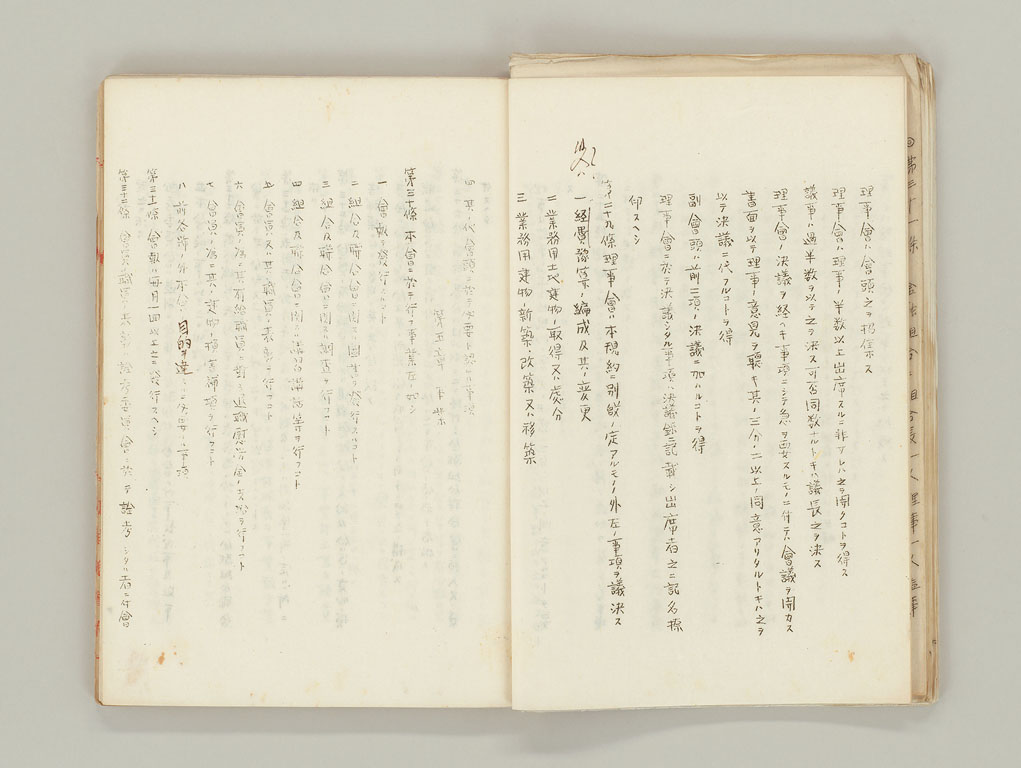 理事會ハ會頭之ヲ招集ス
理事會ハ理事ノ半數以上出席スルニ非アレハ之ヲ開クコトヲ得ス
議事ハ過半数ヲ以テ之ヲ決ス可否同数ナルトキハ議長之ヲ決ス
理事會ノ決議ヲ経ヘキ事項ニシテ急ヲ要スルモノニ付テハ會議ヲ開カス
書面ヲ以テ理事ノ意見ヲ聴キ其ノ三分ノ二以上ノ同意アリタルトキハ之ヲ
以テ決議ニ代フルコトヲ得
副會頭ハ前二項ノ決議ニ加ハルコトヲ得
理事會ニ於テ決議シタル事項ハ決議録ニ記載シ出席者之ニ記名捺
印スヘシ
第二十九條 理事會ハ本規約ニ別段ノ定アルモノノ外左ノ事項ヲ議決ス
一 經費豫算ノ編成及其ノ変更
二 業務用土地建物ノ取得又ハ處分
三 業務用建物ノ新築、改築又ハ移築
四 其ノ他會頭ニ於テ必要ト認ムル事項
第五章 事業
第三十條 本會ニ於テ行フ事業左ノ如シ
一 會報ヲ發行スルコト
二 組合及聯合會ニ関スル図書ヲ發行スルコト
三 組合及聯合會ニ関スル調査ヲ行フコト
四 組合及聯合會ニ関スル講習講話等ヲ行フコト
五 會員又ハ其ノ職員ノ表彰ヲ行フコト
六 會員ノ為ニ其ノ有給職員ニ對スル退職慰労金ノ支給ヲ行フコト
七 會員ノ為ニ其ノ建物ノ損害補填ヲ行フコト
八 前各號ノ外本會ノ目的ヲ達スルニ必要ナル事項
第三十一條 會報ハ毎月四回以上之ヲ發行スヘシ
第三十二條 會員又ハ職員ノ表彰ハ詮考委員會ニ於テ詮考シタル者ニ付會